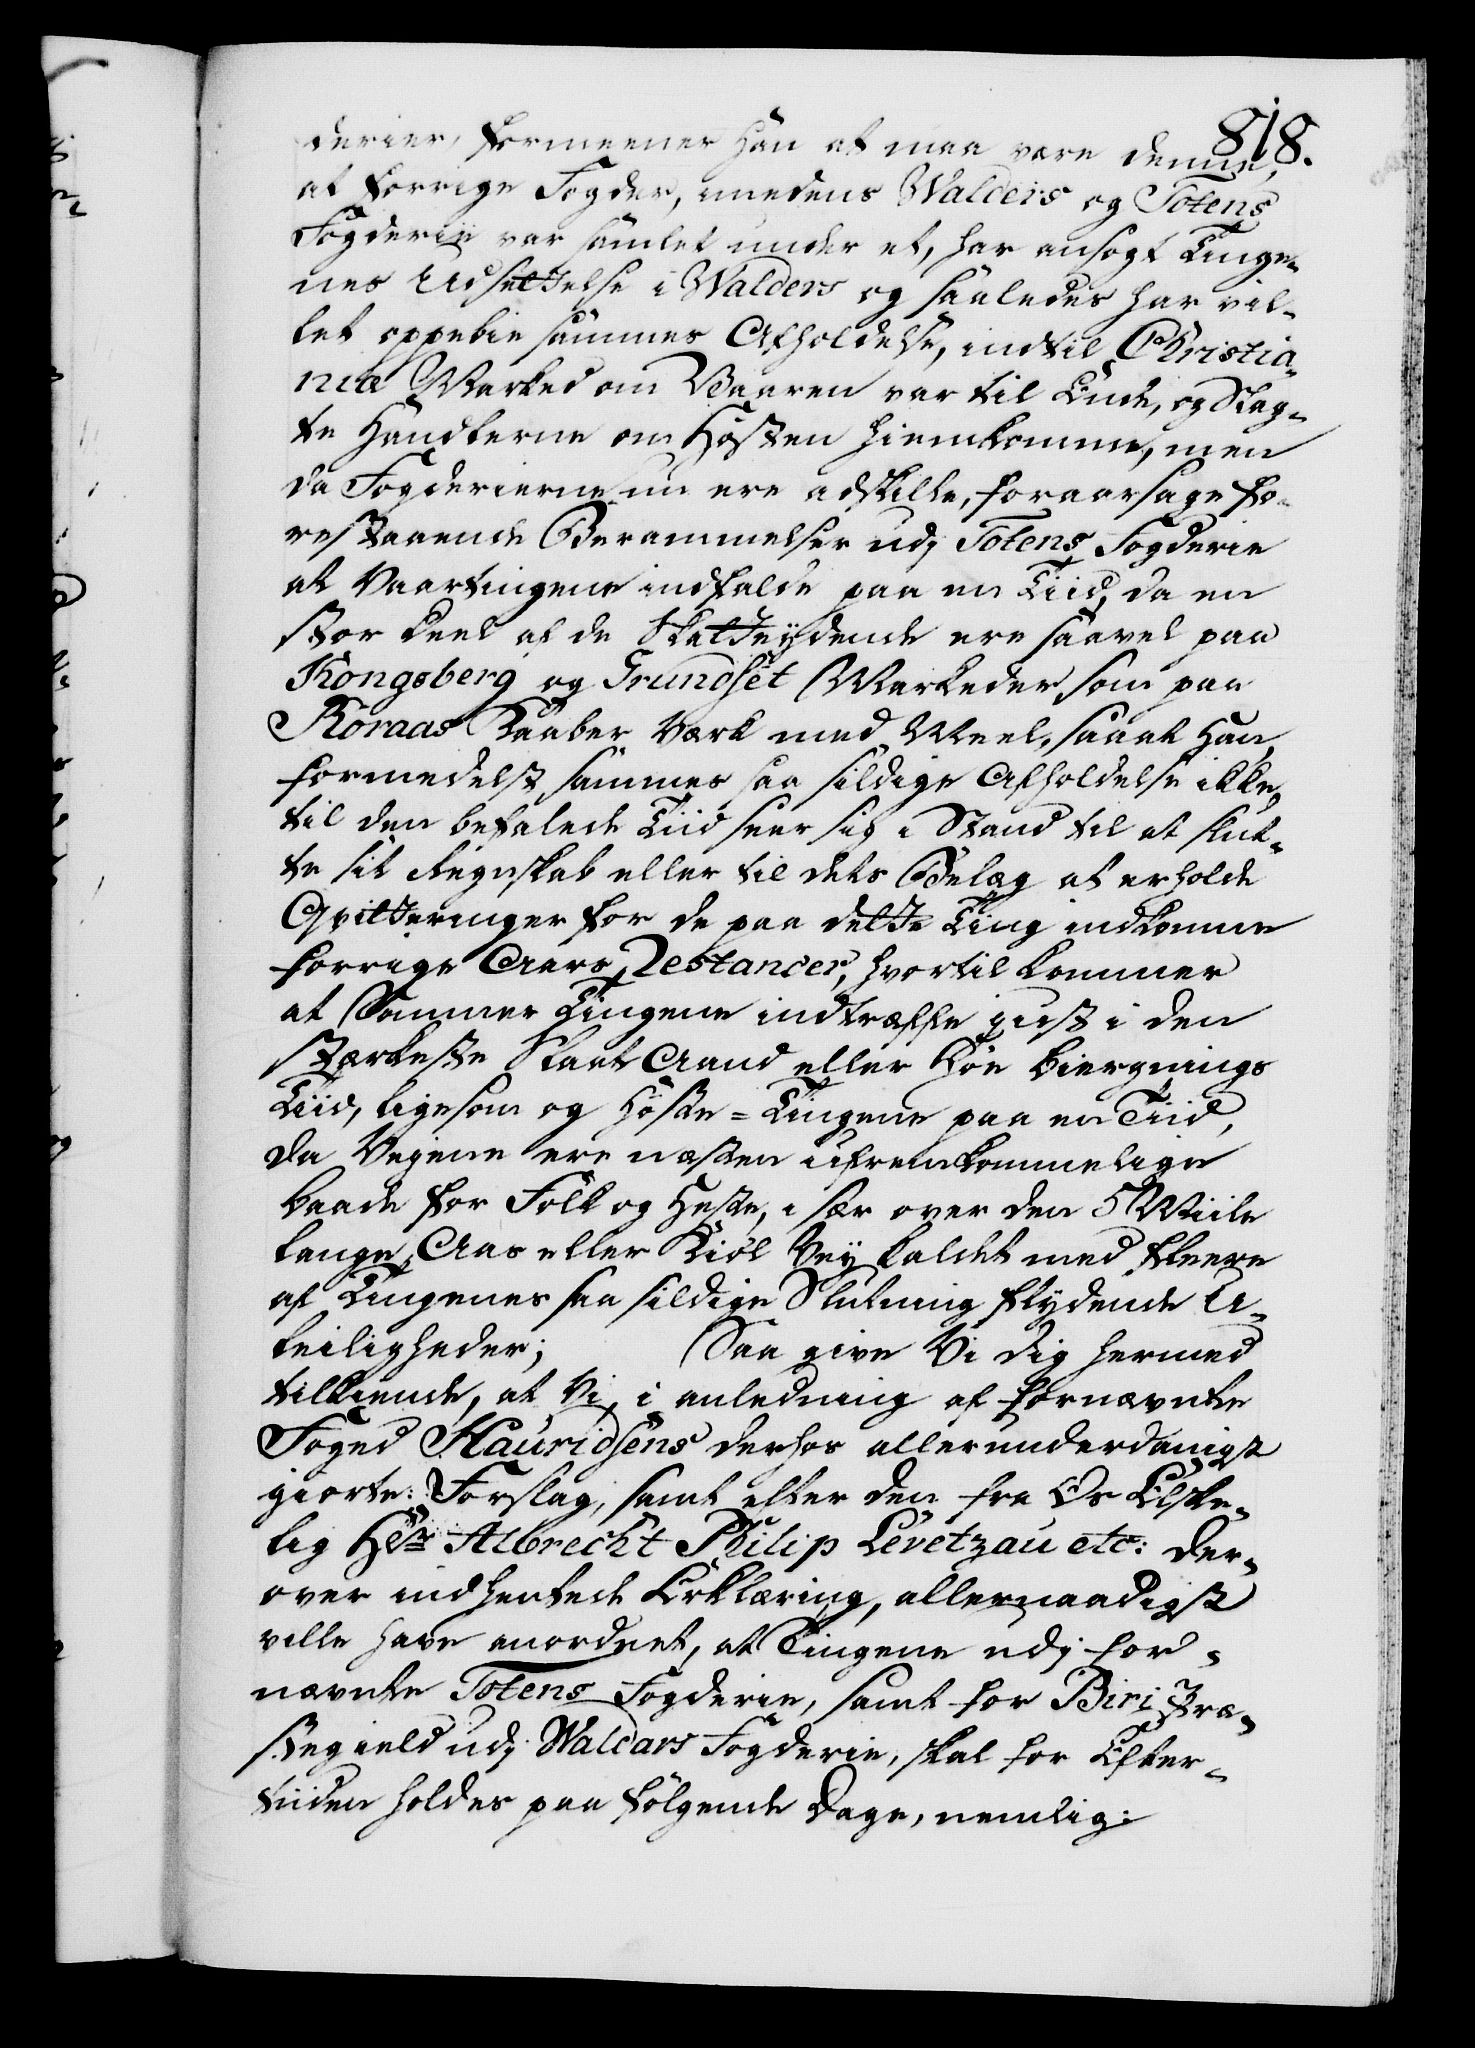 818.
derier, formeener han at maa være denne,
at forrige Fogder, imedens Walders og Totens
Fogderie var samlet under et, har ansøgt Tinge-
nes Udsettelse i Walders og saaledes har vil-
let oppebie sammes Afholdelse, indtil Christia-
nia Marked om Vaaren var til Ende, og Slag-
te Handlerne om Høsten hiemkomme, men
da Fogderierne nu ere adskilte, foraarsage fo-
restaaende Berammelser udj Totens Fogderie
at Vaartingene indfalde paa en Tiid, da en
stor Deel af de Skatteydende ere saavel paa
Kongsberg og Grundset Markeder som paa
Roraas Kaaber Værk med Meel, saa at han
formedelst sammes saa sildige Afholdelse ikke
til den befalede Tiid seer sig i Stand til at slut-
te sit Regnskab eller til dets Belæg at erholde
Qvitteringer for de paa dette Ting indkomne
forrige Aars Restancer, hvortil kommer
at Sommer Tingene indtræffe just i den
stærkeste Slaat Aand eller Høe biergnings
Tiid, ligesom og Høste-Tingene paa en Tiid,
da Vejene ere næsten ufremkommelige
baade for Folk og Heste, i sær over den 5 Miile
lange Aas eller Kiøl Vey kaldet med fleere
af Tingenes saa sildige Slutning flydende U-
leiligheder; Saa give Vi dig hermed
tilkiende, at Vi, i anledning af fornævnte
Foged Hauridsens derhos allerunderdanigst
giorte: Forslag, samt efter den fra Os Elske-
lig Hr Albrecht Philip Levetzau etc: der-
over indhentede Erklæring, allernaadigst
ville have anordnet, at Tingene udj for-
nævnte Totens Fogderie, samt for Biri Præ-
stegield udj Waldars Fogderie, skal for Efter-
tiiden holdes paa følgende Dage, nemlig: